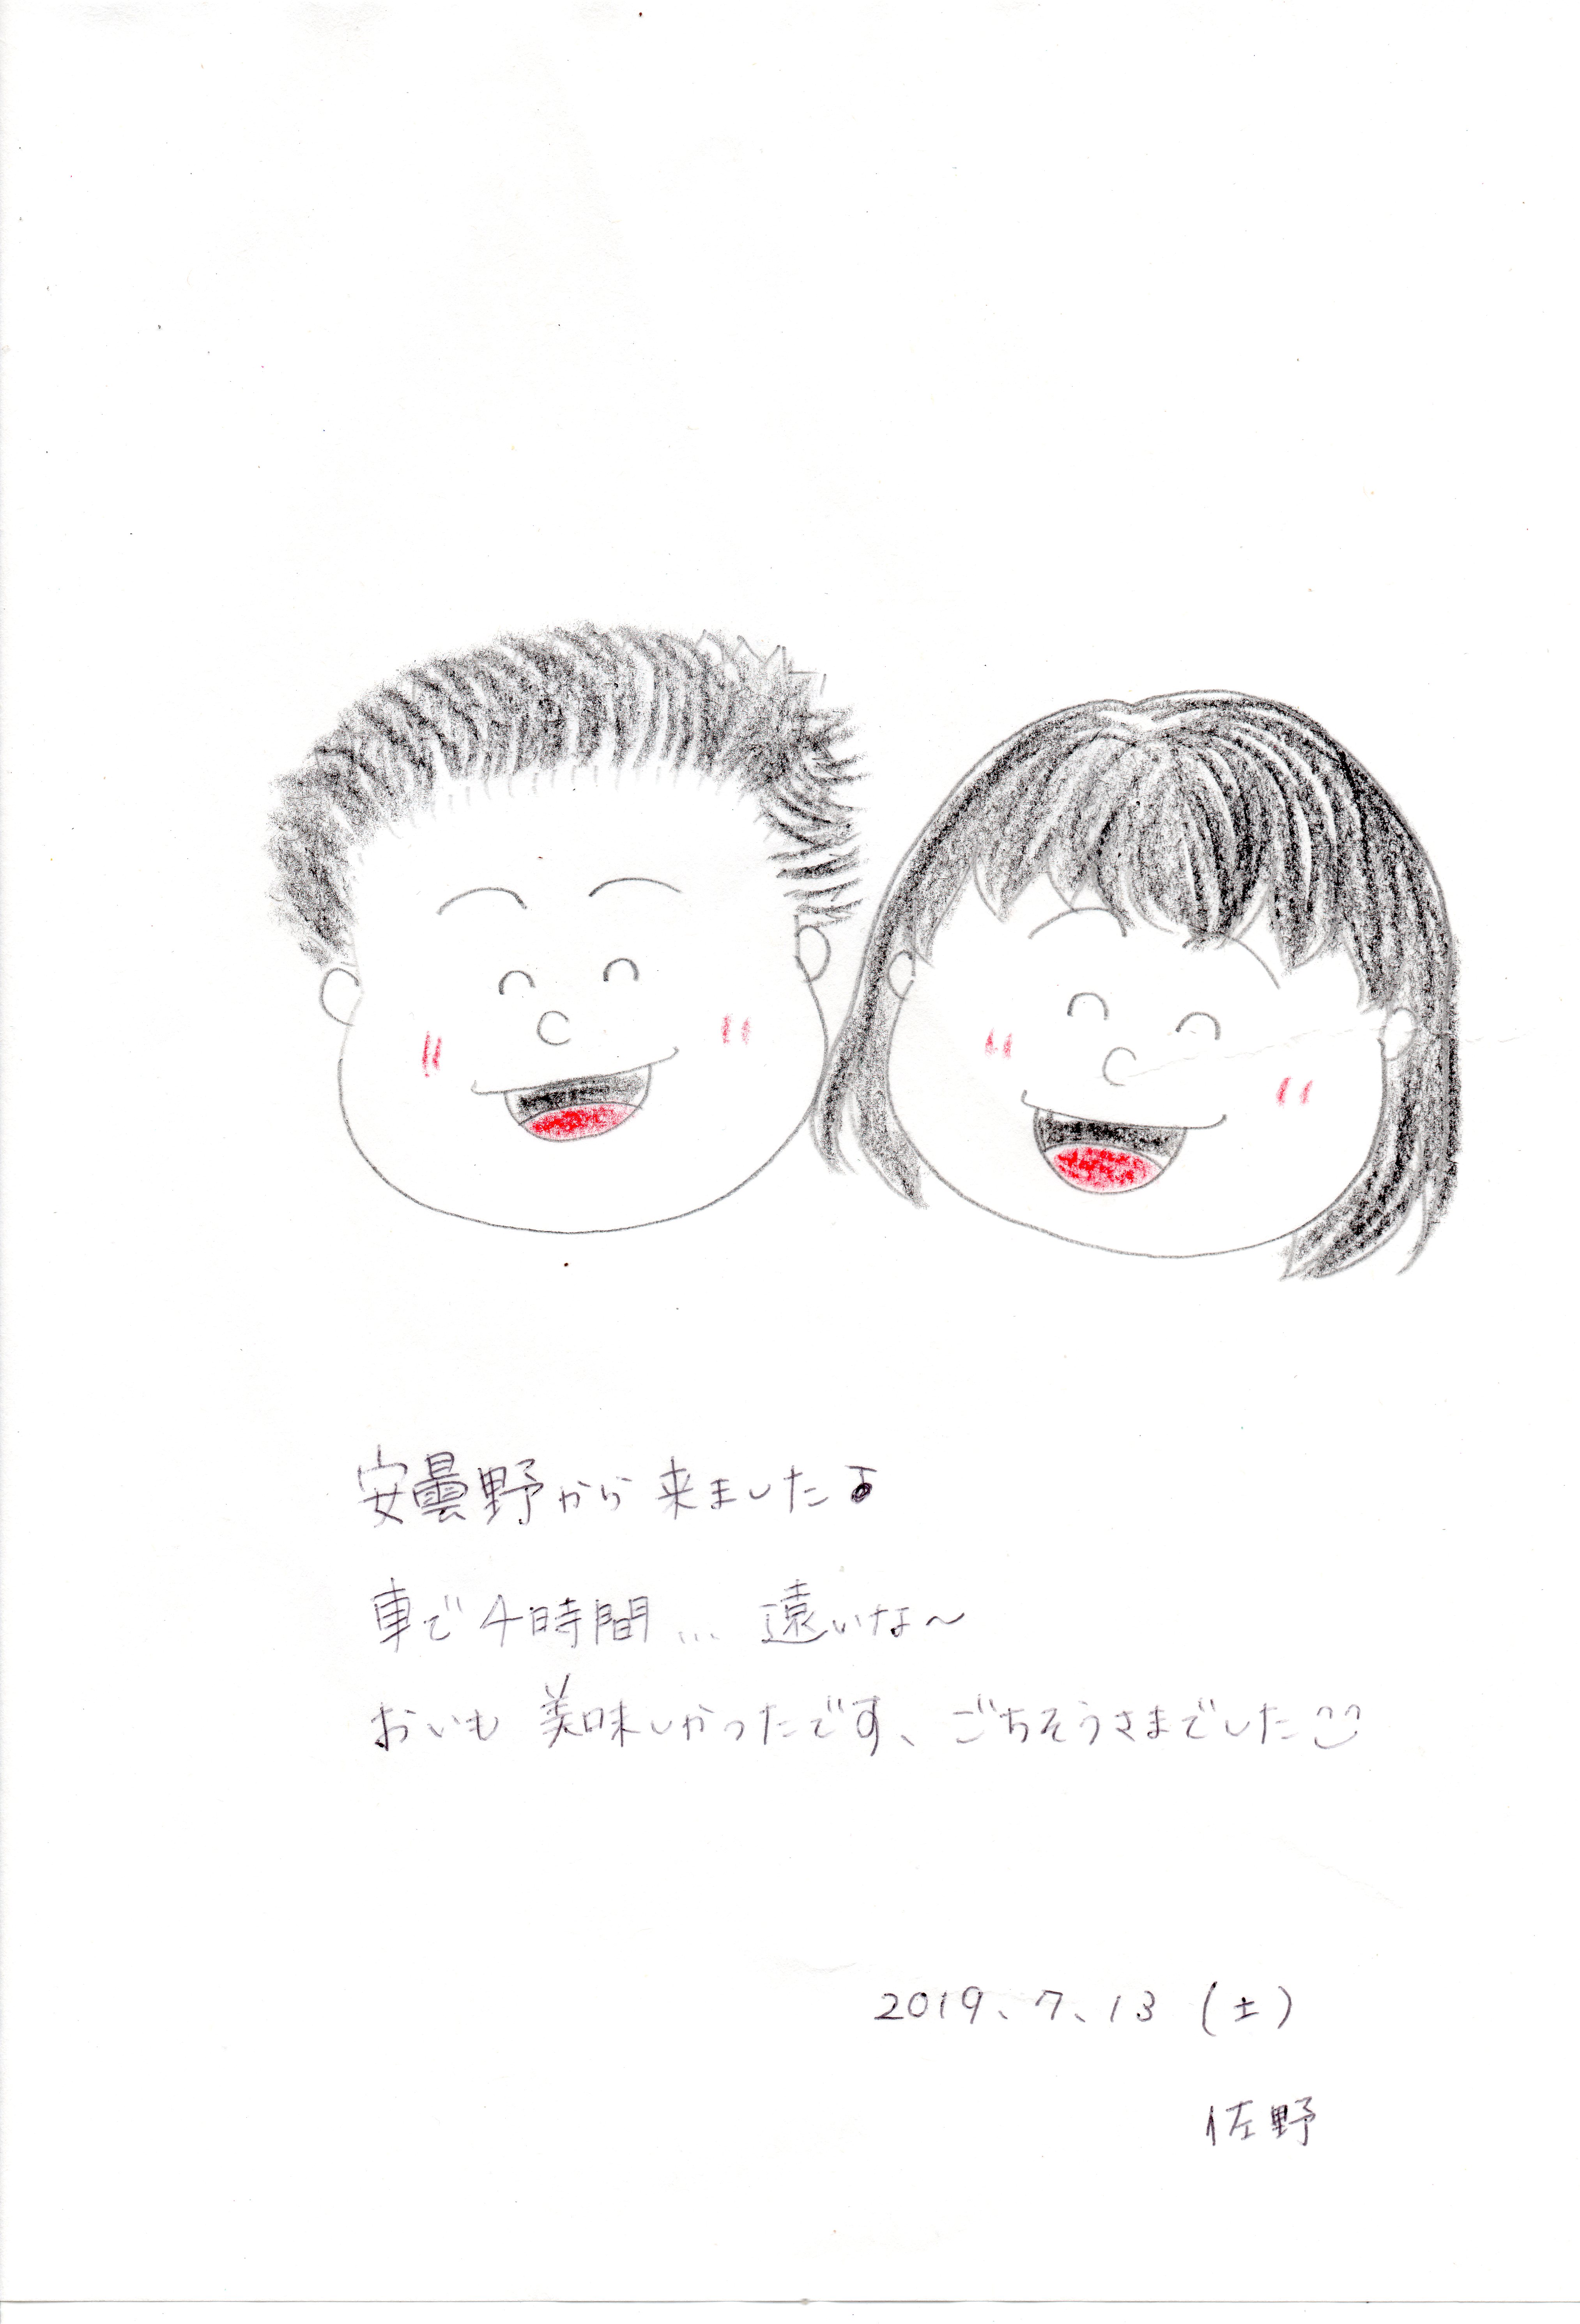 安曇野から来ました♪
車で4時間… 遠いな～
おいも 美味しかったです、ごちそうさまでした
2019、7、13 (土)
佐野